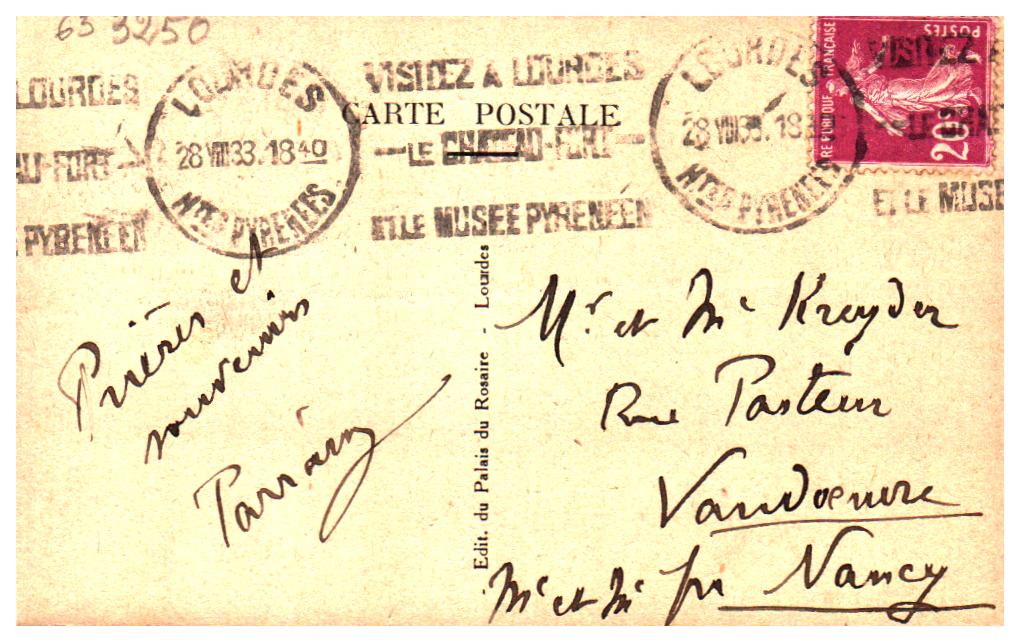 63 3250
LOURDES
AU-FORT
PYRENEEN
LOURDES
28 VIII 33. 18 40
Htes PYRENEES
VISITEZ A LOURDES
LE CHATEAU-FORT
ET LE MUSEE PYRENEEN
CARTE POSTALE
LOURDES
28 VIII 33. 18
Htes PYRENEES
VISITEZ
ET LE MUSE
POSTES
20c
Prières et
souvenirs
Edit. du Palais du Rosaire - Lourdes
Mr et Me Kreyder
Rue Pasteur
Vandoeuvre
Mt et Me par Nancy